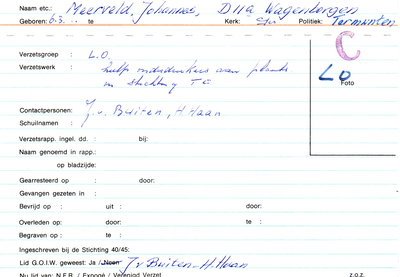 Naam etc.: Meerveld, Johannes, D11a Wagenborgen
Geboren: 6.3. .. te Kerk: Politiek: Termunten
C
Verzetsgroep : L.O.
LO
Verzetswerk : hulp onderduikers aan plaats
in stichting
Foto
Contactpersonen: J. v. Buiten, H. Haan
Schuilnamen :
Verzetsrapp. ingel. dd. : bij:
Naam genoemd in rapp.:
op bladzijde:
Gearresteerd op : door:
Gevangen gezeten in :
Bevrijd op : uit : door:
Overleden op: door: te :
Begraven op : te :
Ingeschreven bij de Stichting 40/45:
Lid G.O.I.W. geweest: Ja / Neen J v Buiten - H. Haan
Nu lid van: N.F.R. / Expogé / Verenigd Verzet z.o.z.